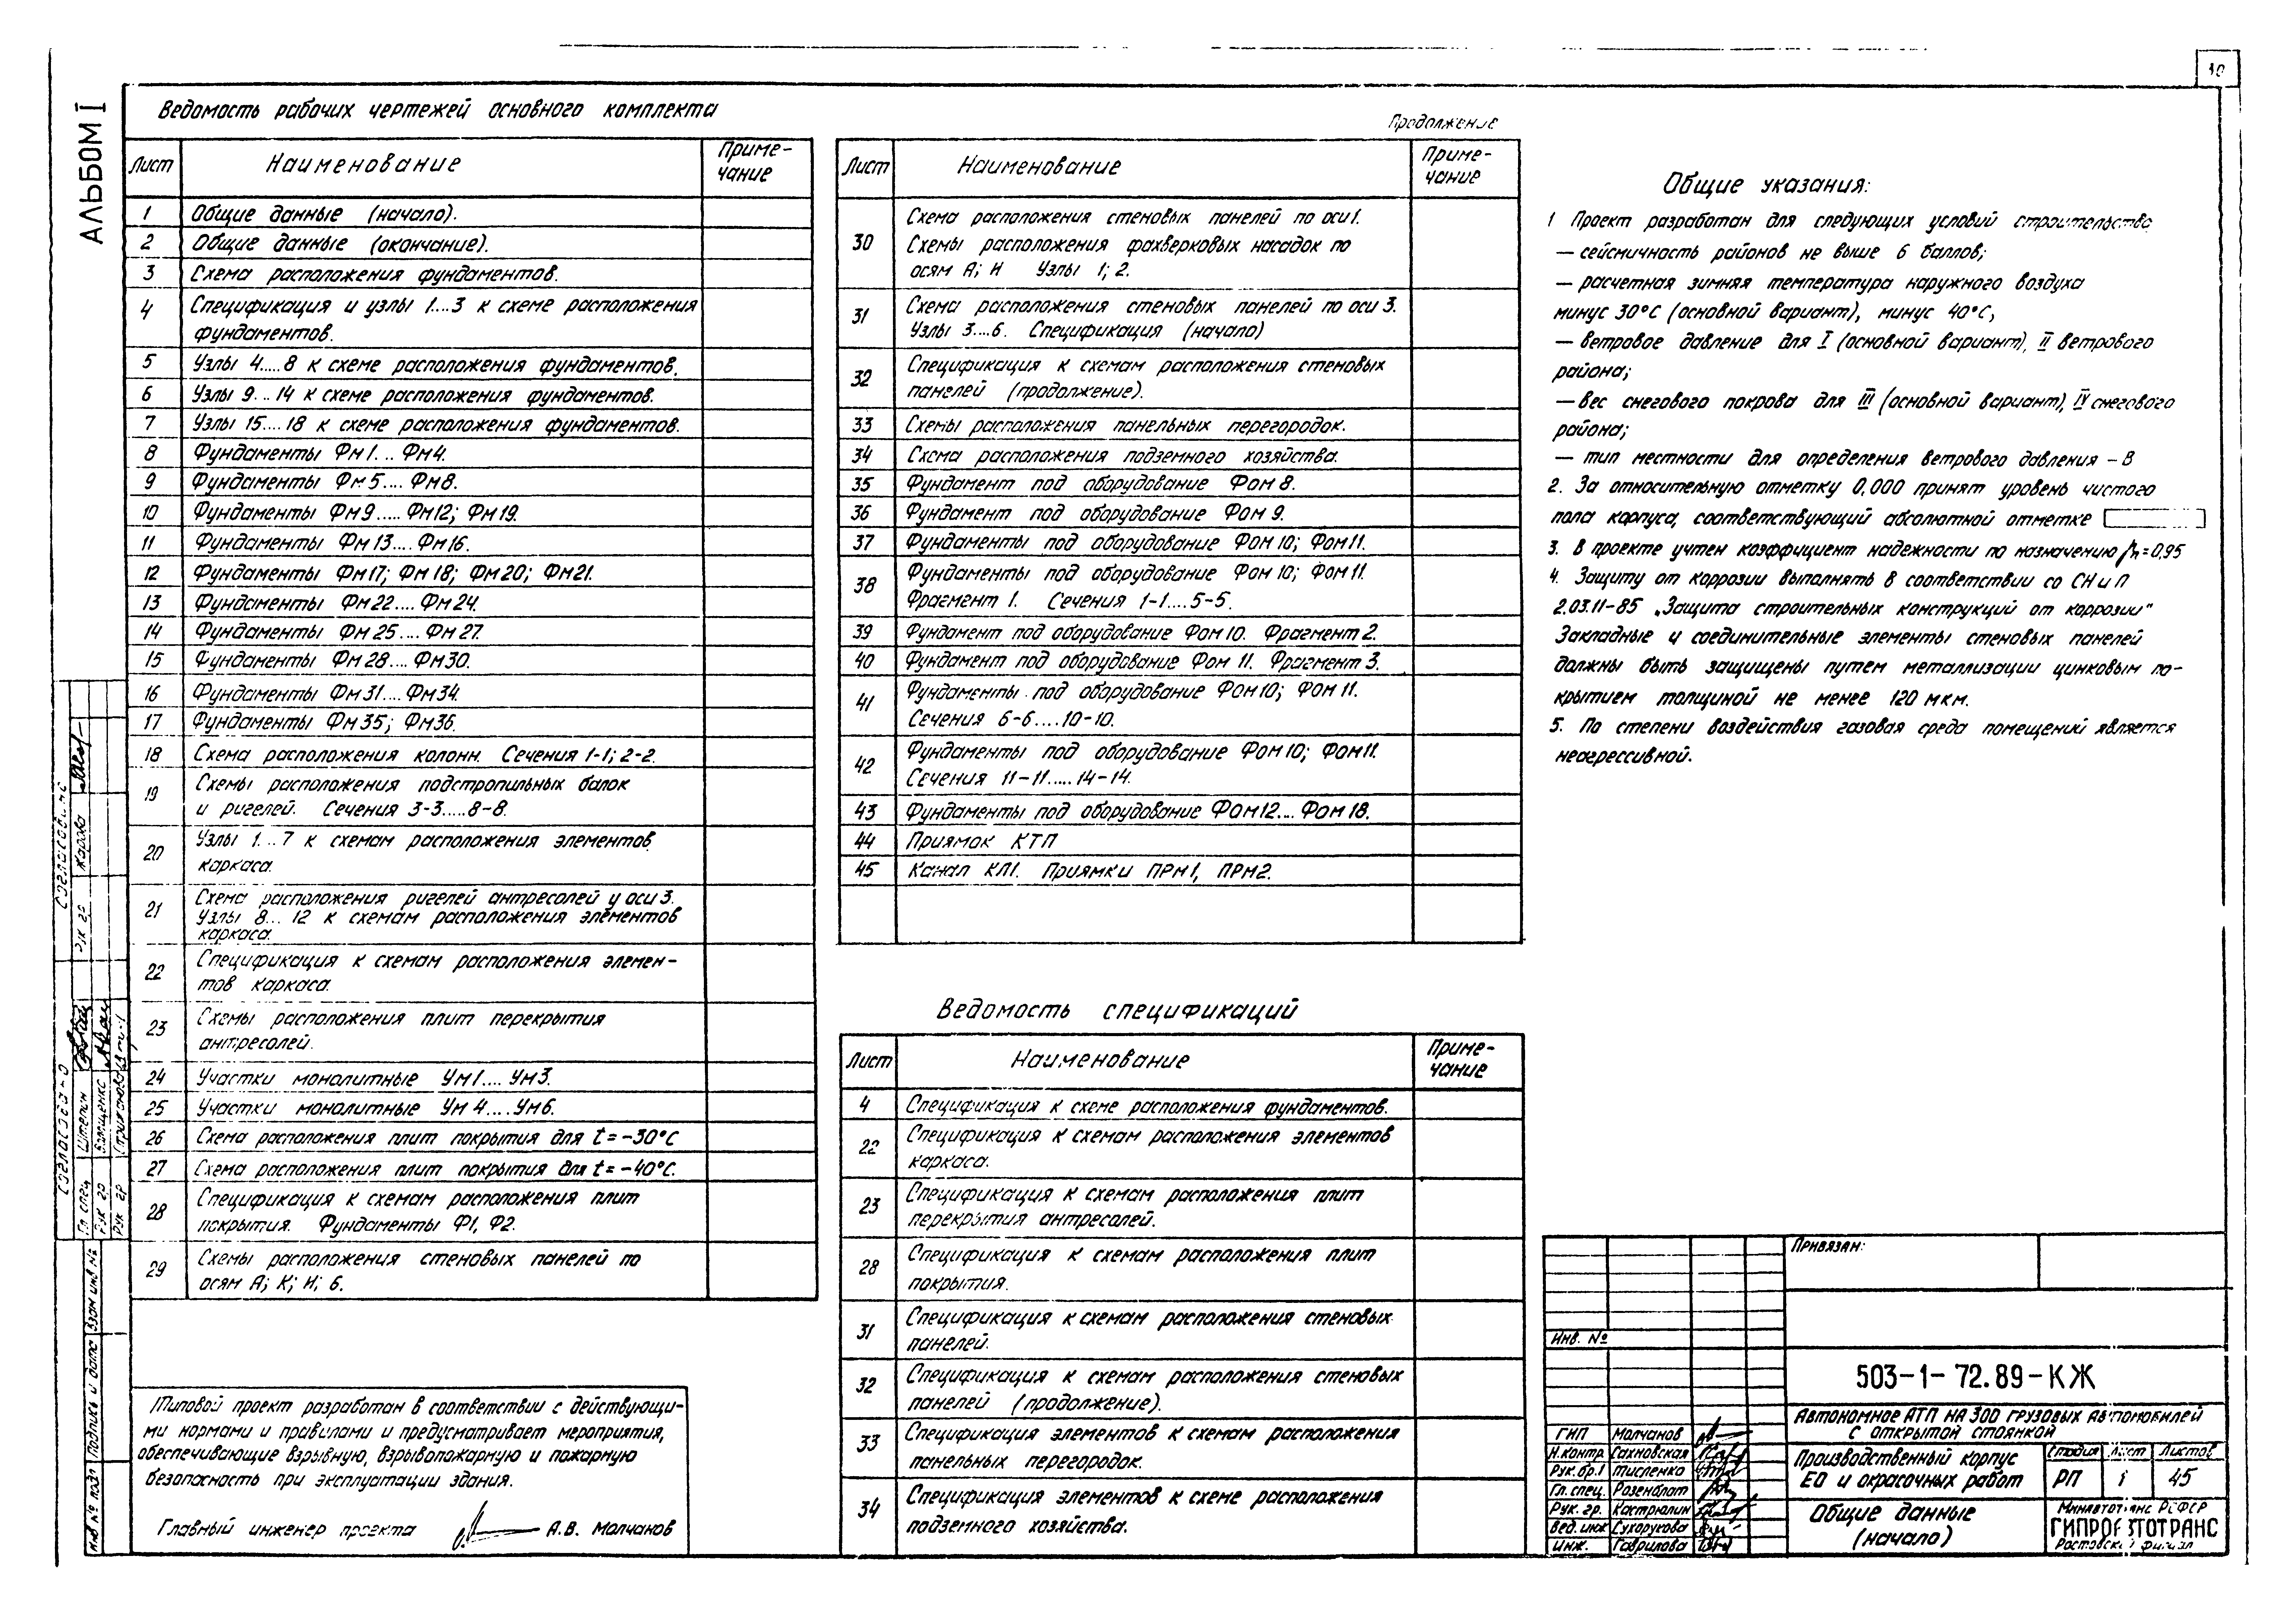 10
АЛЬБОМ I
Ведомость рабочих чертежей основного комплекта
Лист Наименование Приме-
чание
1 Общие данные (начало).
2 Общие данные (окончание).
3 Схема расположения фундаментов.
4 Спецификация и узлы 1...3 к схеме расположения
фундаментов.
5 Узлы 4....8 к схеме расположения фундаментов.
6 Узлы 9...14 к схеме расположения фундаментов.
7 Узлы 15....18 к схеме расположения фундаментов.
8 Фундаменты Фм1... Фм4.
9 Фундаменты Фм5.... Фм8.
10 Фундаменты Фм9..... Фм12; Фм19.
11 Фундаменты Фм13.... Фм16.
12 Фундаменты Фм17; Фм18; Фм20; Фм21.
13 Фундаменты Фм22.... Фм24.
14 Фундаменты Фм25.... Фм27.
15 Фундаменты Фм28.... Фм30.
16 Фундаменты Фм31.... Фм34.
17 Фундаменты Фм35; Фм36.
18 Схема расположения колонн. Сечения 1-1; 2-2.
19 Схемы расположения подстропильных балок
и ригелей. Сечения 3-3.....8-8.
20 Узлы 1...7 к схемам расположения элементов
каркаса.
21 Схема расположения ригелей антресолей у оси 3.
Узлы 8... 12 к схемам расположения элементов
каркаса.
22 Спецификация к схемам расположения элемен-
тов каркаса.
23 Схемы расположения плит перекрытия
антресолей.
24 Участки монолитные Ум1.... Ум3.
25 Участки монолитные Ум4.... Ум6.
26 Схема расположения плит покрытия для t = -30°С
27 Схема расположения плит покрытия для t = -40°С.
28 Спецификация к схемам расположения плит
покрытия. Фундаменты Ф1, Ф2.
29 Схемы расположения стеновых панелей по
осям А; К; И; 6.
Типовой проект разработан в соответствии с действующи-
ми нормами и правилами и предусматривает мероприятия,
обеспечивающие взрывную, взрывопожарную и пожарную
безопасность при эксплуатации здания.
Главный инженер проекта А.В. Молчанов
Продолжение
Лист Наименование Приме-
чание
30 Схема расположения стеновых панелей по оси 1.
Схемы расположения фахверковых насадок по
осям А; И Узлы 1; 2.
31 Схема расположения стеновых панелей по оси 3.
Узлы 3....6. Спецификация (начало)
32 Спецификация к схемам расположения стеновых
панелей (продолжение).
33 Схемы расположения панельных перегородок.
34 Схема расположения подземного хозяйства.
35 Фундамент под оборудование Фом 8.
36 Фундамент под оборудование Фом 9.
37 Фундаменты под оборудование Фом 10; Фом 11.
38 Фундаменты под оборудование Фом 10; Фом 11.
Фрагмент 1. Сечения 1-1....5-5.
39 Фундамент под оборудование Фом 10. Фрагмент 2.
40 Фундамент под оборудование Фом 11. Фрагмент 3.
41 Фундаменты под оборудование Фом 10; Фом 11.
Сечения 6-6....10-10.
42 Фундаменты под оборудование Фом 10; Фом 11.
Сечения 11-11.....14-14.
43 Фундаменты под оборудование Фом 12... Фом 18.
44 Приямок КТП
45 Канал КЛ1. Приямки ПРм1, ПРм2.
Ведомость спецификаций
Лист Наименование Приме-
чание
4 Спецификация к схеме расположения фундаментов.
22 Спецификация к схемам расположения элементов
каркаса.
23 Спецификация к схемам расположения плит
перекрытия антресолей.
28 Спецификация к схемам расположения плит
покрытия.
31 Спецификация к схемам расположения стеновых
панелей.
32 Спецификация к схемам расположения стеновых
панелей (продолжение).
33 Спецификация элементов к схемам расположения
панельных перегородок.
34 Спецификация элементов к схеме расположения
подземного хозяйства.
Общие указания:
1 Проект разработан для следующих условий строительства
— сейсмичность районов не выше 6 баллов;
— расчетная зимняя температура наружного воздуха
минус 30°С (основной вариант), минус 40°С,
— ветровое давление для I (основной вариант), II ветрового
района;
— вес снегового покрова для III (основной вариант), IV снегового
района;
— тип местности для определения ветрового давления – В
2. За относительную отметку 0,000 принят уровень чистого
пола корпуса, соответствующий абсолютной отметке
3. В проекте учтен коэффициент надежности по назначению γn = 0,95
4. Защиту от коррозии выполнять в соответствии со СНиП
2.03.11-85 „Защита строительных конструкций от коррозии"
Закладные и соединительные элементы стеновых панелей
должны быть защищены путем металлизации цинковым по-
крытием толщиной не менее 120 мкм.
5. По степени воздействия газовая среда помещений является
неагрессивной.
Привязан:
Инв. №
503-1-72.89-КЖ
Автономное АТП на 300 грузовых автомобилей
с открытой стоянкой
ГИП Молчанов
Н.контр. Сахновская
Рук.бр.1 Тисленко
Гл.спец. Розенблат
Рук. гр. Кастрюлин
Вед. инж Сухорукова
Инж. Гаврилова
Производственный корпус
ЕО и окрасочных работ
Стадия Лист Листов
РП 1 45
Общие данные
(начало)
Минавтотранс РСФСР
ГИПРОАВТОТРАНС
Ростовский филиал
Согласовано
Рук гр Жарова
Согласовано
Гл спец Штерпин
Рук гр
Рук гр
Взам инв №
Подпись и дата
Инв № подл